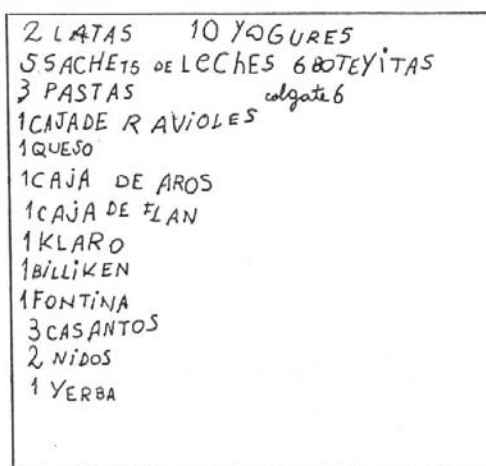 2 LATAS 10 YOGURES
5 SACHETS DE LECHES 6 BOTEYITAS
3 PASTAS colgate 6
1 CAJA DE RAVIOLES
1 QUESO
1 CAJA DE AROS
1 CAJA DE FLAN
1 KLARO
1 BILLIKEN
1 FONTINA
3 CASANTOS
2 NIDOS
1 YERBA